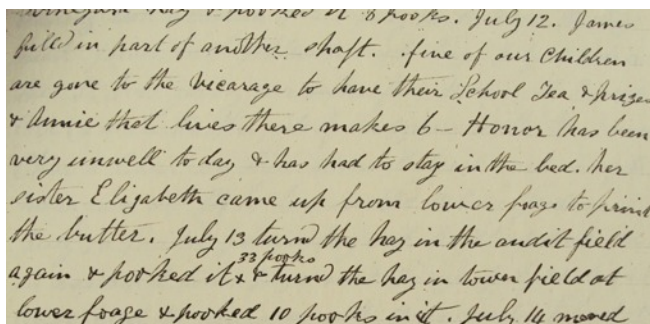 hay & pooked it 8 pooks. July 12. James
filld in part of another shaft. five of our children
are gone to the Vicarage to have their School Tea & prizes
& Annie that lives there makes 6 - Honor has been
very unwell to day & has had to stay in the bed. her
sister Elizabeth came up from lower foage to print
the butter. July 13 turnd the hay in the audit field
again & pooked it x 33 pooks & turnd the hay in tower field at
lower foage & pooked 10 pooks in it. July 14 mowed